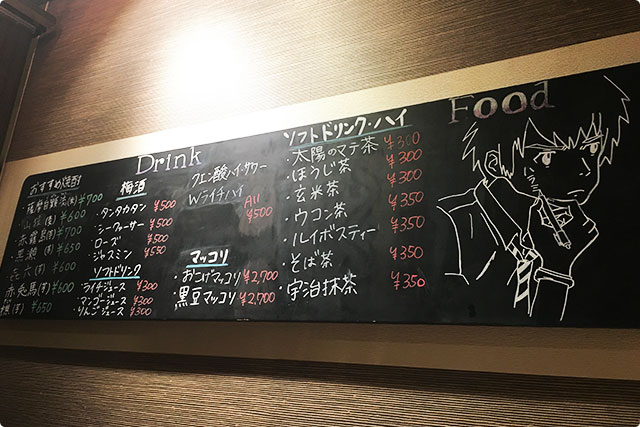 Drink
Food
おすすめ焼酎
¥700
¥600
¥700
黒 ¥650
¥600
赤兎馬(芋) ¥600
¥650
梅酒
・タンタカタン ¥500
・シークヮーサー ¥500
・ローズ ¥500
・ジャスミン ¥550
ソフトドリンク
・ライチジュース ¥300
・マンゴージュース ¥300
・りんごジュース ¥300
クエン酸ハイ・サワー
Wライチハイ
All
¥500
マッコリ
・おこげマッコリ ¥2,700
・黒豆マッコリ ¥2,700
ソフトドリンク・ハイ
・太陽のマテ茶 ¥300
・ほうじ茶 ¥300
・玄米茶 ¥300
・ウコン茶 ¥350
・ルイボスティー ¥350
・そば茶 ¥350
・宇治抹茶 ¥350